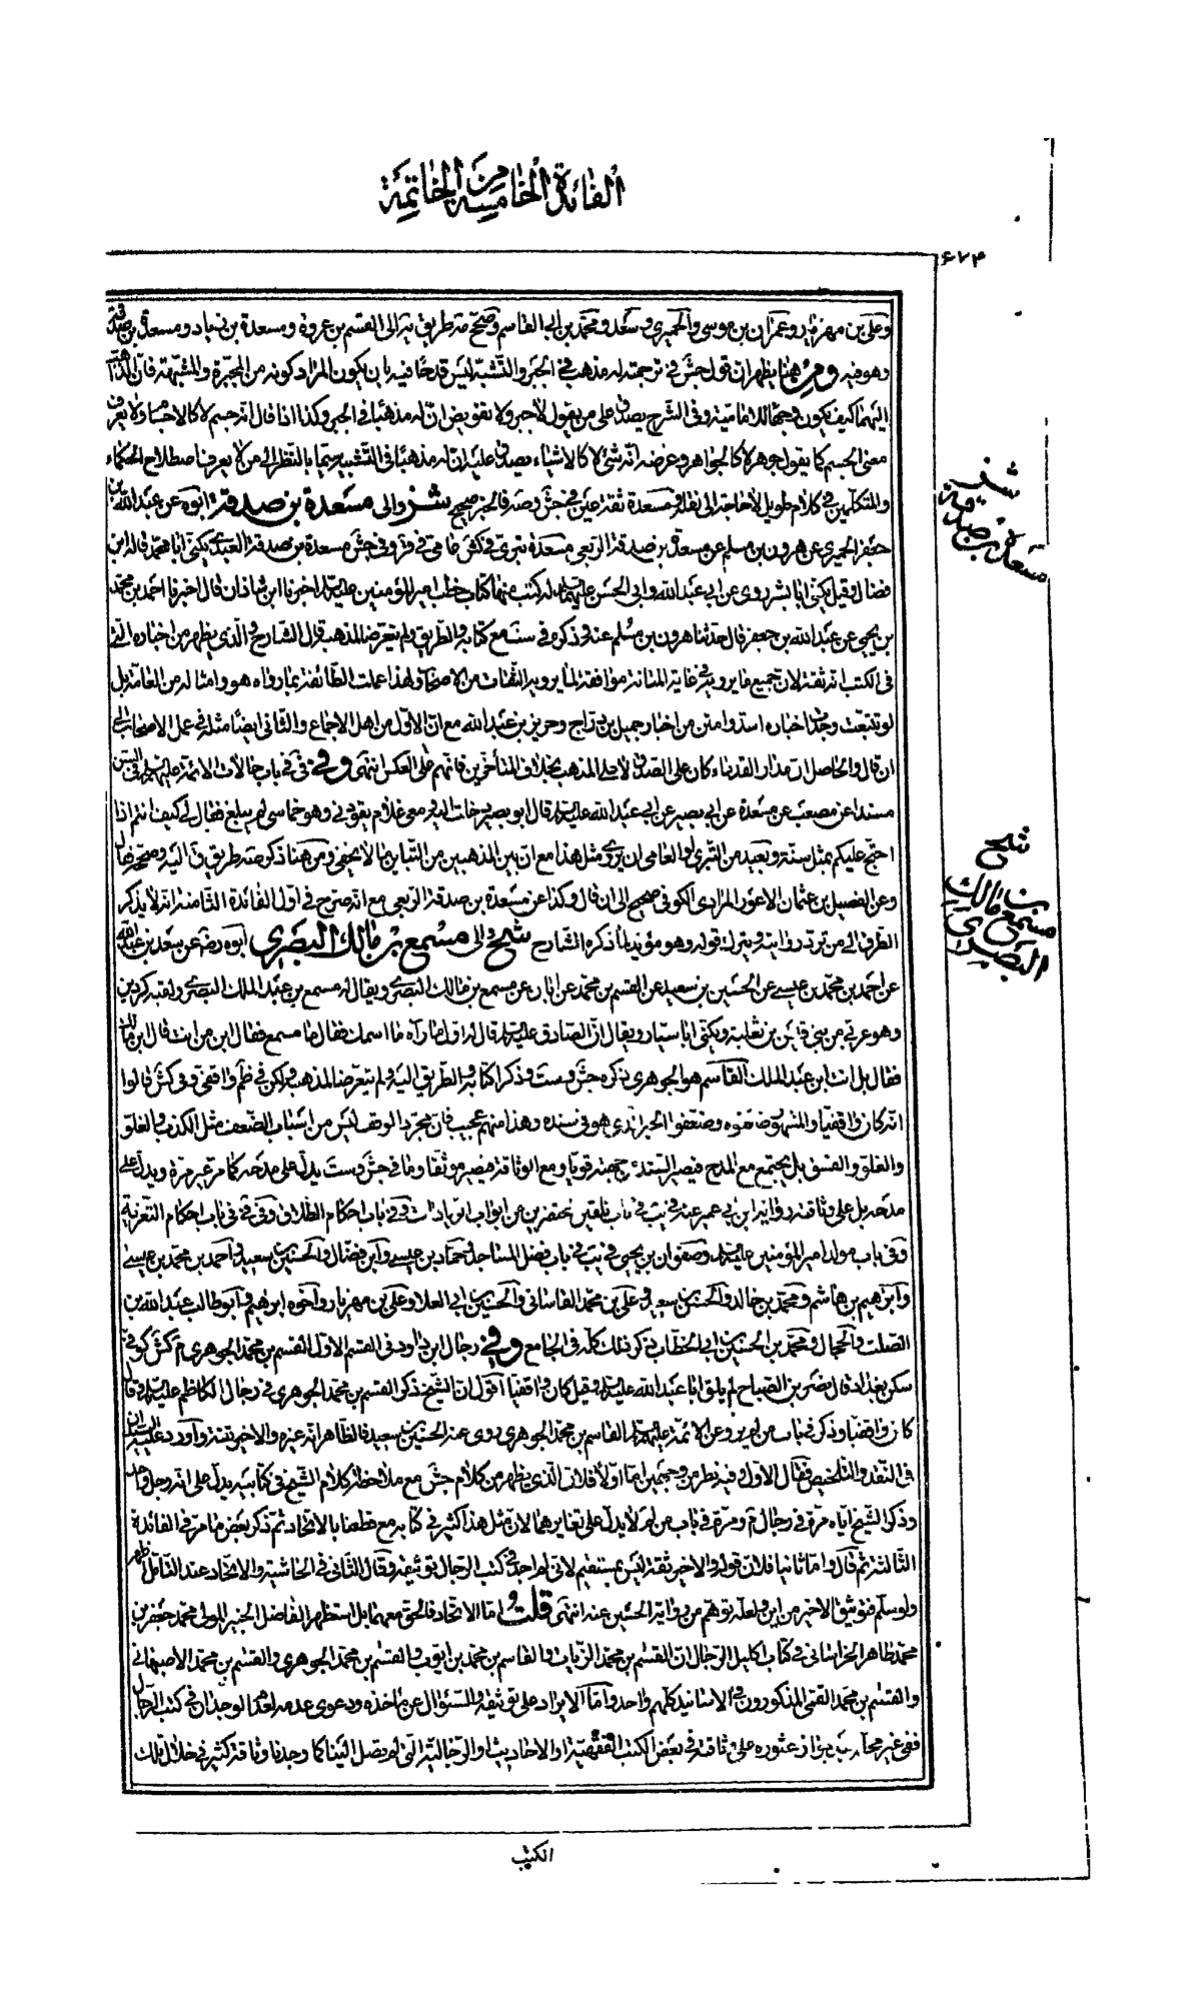 الفائدة الخامسة من الخاتمة
٦٧٤
وعلى بن مهزيار وعمران بن موسى والحميرى وسعد ومحمد بن ابى القاسم وصح طريق يه الى القسم بن عروة ومسعدة بن زياد ومسعدة بن صدقة
وهو فيه ومن هنا يظهر ان قول جش فى ترجمته له مذهب فى الجبر والتشبيه ليس قدحا فيه بان يكون المراد كونه من المجبرة والمشبهة فان
اليهما كيف يكون وجها للامامية وفى الشرح يصدق على من يقول لا جبر ولا تفويض ان له مذهبا فى الجبر وكذا اذا قال انه جسم لا كالاجسام ولا يعرف
معنى الجسم كما يقول جوهر لا كالجواهر وغرضه انه شئ لا كالاشياء يصدق عليه ان له مذهبا فى التشبيه سيما بالنظر الى من لا يعرف اصطلاح الحكماء
والمتكلمين فى كلام طويل لا حاجة الى نقله ومسعدة ثقة عين فى جش وصه فالخبر صحيح شز والى مسعدة بن صدقة ابوه عن عبد الله بن
جعفر الحميرى عن هرون بن مسلم عن مسعدة بن صدقة الربعى مسعدة بترى فى كش عامى فى ق وفى جش مسعدة بن صدقة العبدى يكنى ابا محمد قاله ابن
فضال وقيل يكنى ابا بشر روى عن ابى عبد الله وابى الحسن عليهما السلم له كتب منها كتاب خطب امير المؤمنين عليه السلم اخبرنا ابن شاذان قال اخبرنا احمد بن محمد
بن يحيى عن عبد الله بن جعفر قال حدثنا هرون بن مسلم عنه وذكره فى ست مع كتابه والطريق ولم يتعرضا لمذهبه قال الشارح والذى يظهر من اخباره التى
فى الكتب انه ثقة لان جميع ما يرويه فى غاية المتانة موافقة لما يرويه الثقات من الاصحاب ولهذا عملت الطائفة بما رواه هو وامثاله من العامة بل
لو تتبعت وجدت اخباره اسد وامتن من اخبار جميل بن دراج وحريز بن عبد الله مع ان الاول من اهل الاجماع والثانى ايضا مثله فى عمل الاصحاب الى
ان قال والحاصل ان مدار القدماء كان على الصدق لا على المذهب بخلاف المتأخرين فانهم على العكس انتهى وفى فى باب حالات الائمة عليهم السلم فى السن
مسندا عن مصعب عن مسعدة عن ابى بصير عن ابى عبد الله عليه السلم قال ابو بصير دخلت اليه ومعى غلام يقودنى وهو خماسى لم يبلغ فقال لى كيف انتم اذا
احتج عليكم بمثل سنه وبعيد من البترى او العامى ان يروى مثل هذا مع ان بين المذهبين من التباين ما لا يخفى ومن هنا ذكر صه طريق ق اليه وصححه فقال
وعن الفضيل بن عثمان الاعور المرادى الكوفى صحيح الى ان قال وكذا عن مسعدة بن صدقة الربعى مع انه صرح فى اول الفائدة الثامنة انه لا يذكر
الطرق الى من ترد روايته ويترك قوله وهو مؤيد لما ذكره الشارح شح والى مسمع بن مالك البصرى ابوه رضه عن سعد بن عبد الله
عن احمد بن محمد بن عيسى عن الحسين بن سعيد عن القسم بن محمد عن ابان عن مسمع بن مالك البصرى ويقال له مسمع بن عبد الملك البصرى ولقبه كردين
وهو عربى من بنى قيس بن ثعلبة ويكنى ابا سيار ويقال ان الصادق عليه السلم قال له اول ما رآه ما اسمك فقال مسمع فقال ابن من انت قال ابن مالك
فقال بل انت ابن عبد الملك القاسم هو الجوهرى ذكره جش وست وذكرا كتابه والطريق اليه ولم يتعرضا لمذهبه ولكن فى ظم واقفى وفى كش قالوا
انه كان واقفيا والمشهور ضعفوه وضعفوا الخبر الذى هو فى سنده وهذا منهم عجيب فان مجرد الوقف ليس من اسباب الضعف مثل الكذب والغلق
والغلو والفسق بل يجتمع مع المدح فيصير السند من جهته قويا ومع الوثاقة فيصير موثقا وما فى جش وست يدل على مدحه كما مر غير مرة ويدل على
مدحه بل على وثاقته رواية ابن ابى عمير عنه فى يب فى باب تلقين المحتضرين من ابواب الزيادات وفى باب احكام الطلاق وفى فى باب احكام التعزية
وفى باب مولد امير المؤمنين عليه السلم وصفوان بن يحيى فى يب فى باب فضل المساجد وحماد بن عيسى وابن فضال والحسين بن سعيد واحمد بن محمد بن عيسى
وابراهيم بن هاشم ومحمد بن خالد والحسين بن سعيد وعلى بن محمد القاسانى والحسين بن ابى العلا وعلى بن مهزيار واخوه ابراهيم وابو طالب عبد الله بن
الصلت والحجال ومحمد بن الحسين بن ابى الخطاب ذكر ذلك كله فى الجامع وفى رجال ابن داود فى القسم الاول القسم بن محمد الجوهرى م كش كوفى
سكن بغداد قال نصر بن الصباح لم يلق ابا عبد الله عليه السلم وقيل كان واقفيا اقول ان الشيخ ذكر القسم بن محمد الجوهرى فى رجال الكاظم عليه السلم وقال
كان واقفيا وذكر فى باب من لم يرو عن الائمة عليهم السلم القاسم بن محمد الجوهرى روى عنه الحسين بن سعيد فالظاهر انه غيره والاخير ثقة واورد عليه السيدان
فى النقد والتلخيص فقال الاول فيه نظر من وجهين اما اولا فلان الذى يظهر من كلام جش مع ملاحظة كلام الشيخ فى كتابيه يدل على انه رجل واحد
وذكر الشيخ اياه مرة فى رجال م ومرة فى باب من لم لا يدل على تغايرهما لان مثل هذا كثير فى كتابه مع قطعنا بالاتحاد ثم ذكر بعض ما مر فى الفائدة
الثالثة ثم قال واما ثانيا فلان قوله والاخير ثقة ليس بمستقيم لانى لم اجد فى كتب الرجال توثيقه وقال الثانى فى الحاشية والاتحاد عند التأمل ظهر
ولو سلم فتوثيق الاخير من اين ولعله توهم من رواية الحسين عنه انتهى قلت واما الاتحاد فالحق معهما بل استظهر الفاضل الخبير المولى محمد جعفر بن
محمد طاهر الخراسانى فى كتاب اكليل الرجال ان القسم بن محمد الزيات والقاسم بن محمد بن ايوب والقسم بن محمد الجوهرى والقسم بن محمد الاصبهانى
والقسم بن محمد القمى المذكورون فى الاسانيد كلهم واحد واما الايراد على توثيقه والسئوال عن مأخذه ودعوى عدمه لعدم الوجدان فى كتب الرجال
ففى غير محله لجواز عثوره على وثاقته فى بعض الكتب الفقهية او الاحاديث والرجالية التى لم يصل الينا كما وجدنا وثاقة كثير فى خلال تلك
الكتب
شز
مسعدة بن صدقة
شح
مسمع بن مالك
البصرى